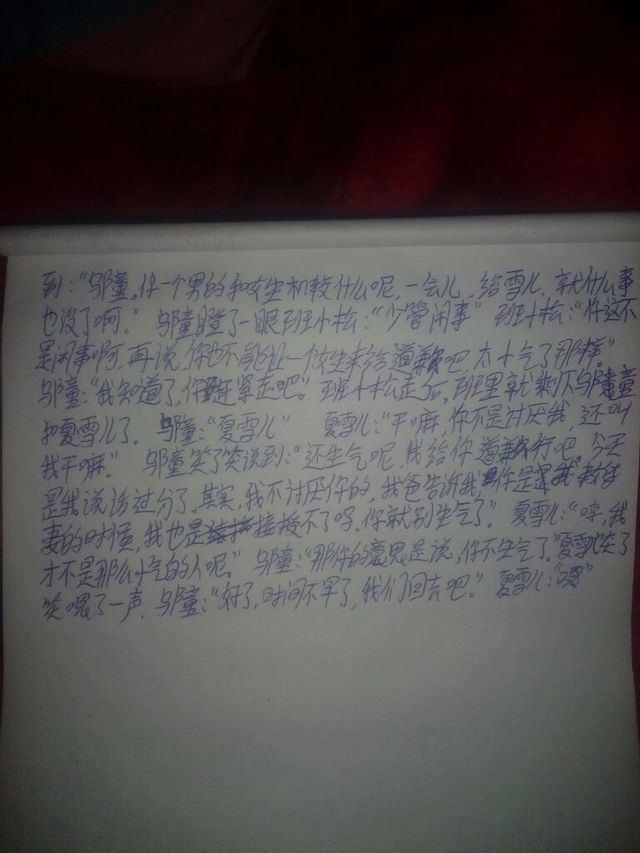 到:“邬童,你一个男的和女生机较什么呢,一会儿,给雪儿,就什么事
也没了啊。” 邬童瞪了一眼班小松:“少管闲事” 班小松:“你这不
是闲事啊,再说,你也不能让一个女生来给道歉吧,太小气了那样”
邬童:“我知道了,你赶紧走吧”。班小松走后,班里就剩下邬童
和夏雪儿了。邬童:“夏雪儿” 夏雪儿:“干嘛,你不是讨厌我,还叫
我干嘛。” 邬童笑了笑说到:“还生气呢,我给你道歉行吧,今天
是我说话过分了。其实,我不讨厌你的,我爸告诉我你是我
妻的时候,我也是接授不了吗,你就别生气了” 夏雪儿:“哼,我
才不是那么小气的人呢。” 邬童:“那你的意思是说,你不生气了。”夏雪儿笑了
笑嗯了一声,邬童:“好了,时间不早了,我们回去吧。” 夏雪儿:“嗯”